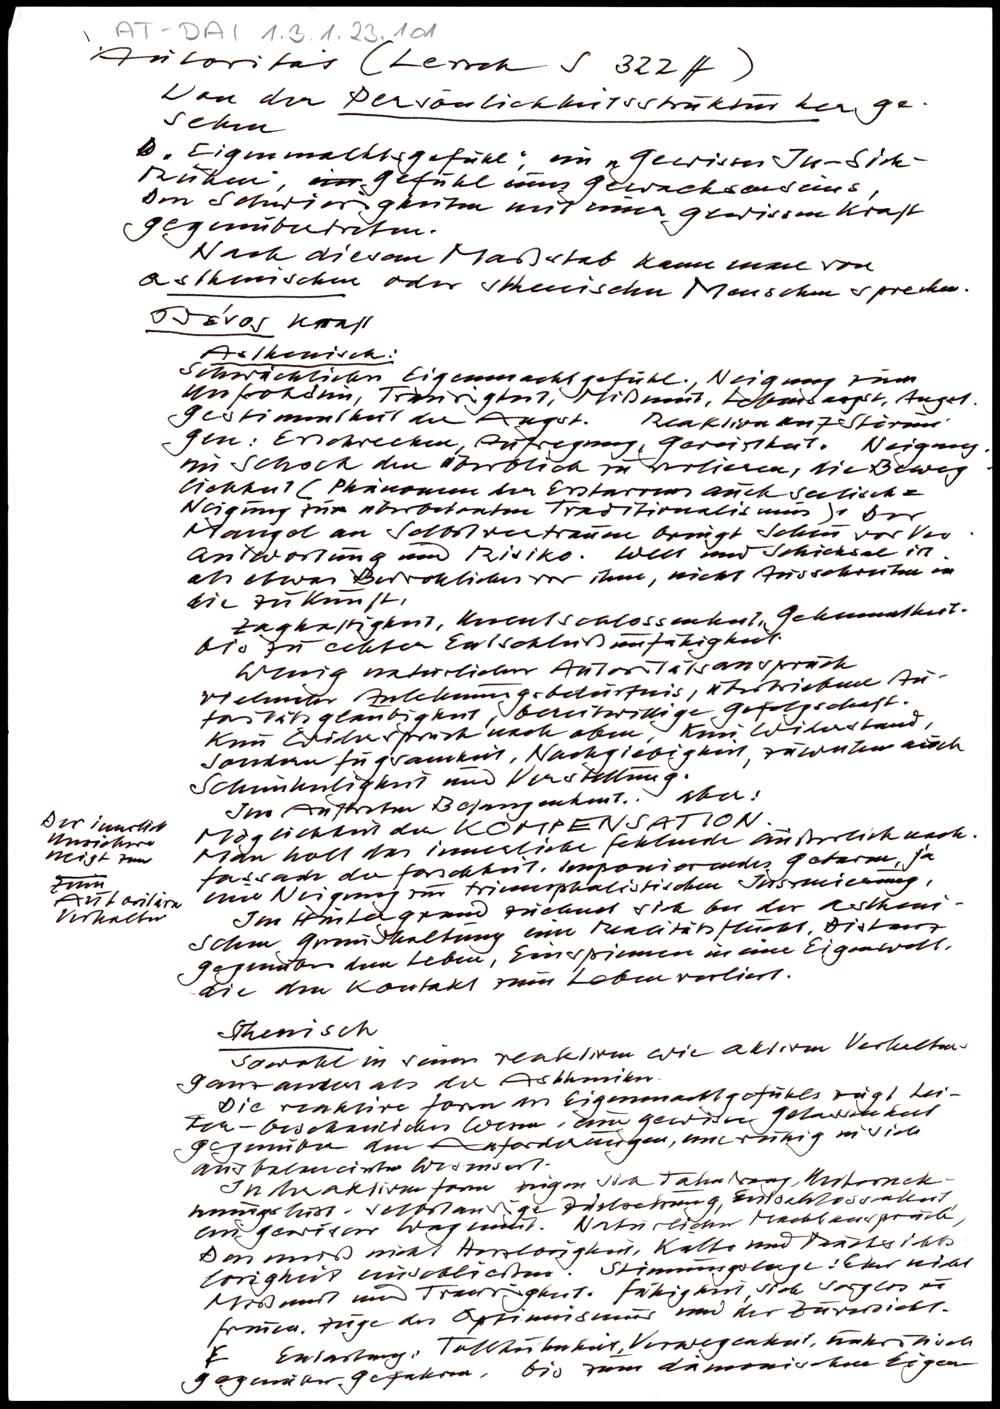 AT-DAI 1.3.1.23.101
Autorität (Lersch S 322 ff)
Von der Persönlichkeitsstruktur her ge-
sehen
D. "Eigenmachtsgefühl", ein "gewisses In-Sich-
Ruhen", ein Gefühl eines Gewachsenseins,
Den Schwierigkeiten mit einer gewissen Kraft
gegenübertreten.
Nach diesem Maßstab kann man von
asthenischen oder sthenischen Menschen sprechen.
σθένος Kraft
Asthenisch:
Schwächliches Eigenmachtgefühl, Neigung zum
Unfrohsinn, Traurigkeit, Mißmut, Lebensangst, Angst.
Gestimmtheit der Angst. Reaktion auf Störun
gen: Erschrecken, Aufregung, Gereiztheit. Neigung
im Schock den Überblick zu verlieren, die Beweg
lichkeit (Phänomen des Erstarrens auch seelisch =
Neigung zum überbetonten Traditionalismus). Der
Mangel an Selbstvertrauen bringt Scheu vor Ver
antwortung und Risiko. Welt und Schicksal ist
als etwas Bedrohliches vor ihm, nicht Ausschreiten in
die Zukunft.
Zaghaftigkeit, Unentschlossenheit, Gehemmtheit.
bis zu echter Entschlußunfähigkeit.
Wenig natürlicher Autoritätsanspruch
vielmehr Anlehnungsbedürfnis, übertriebene Au-
toritätsgläubigkeit, bereitwillige Gefolgschaft.
Kein Widerspruch nach oben, kein Widerstand,
sondern Fügsamkeit, Nachgiebigkeit, zuweilen auch
Scheinheiligkeit und Verstellung.
Im Auftreten Befangenheit. aber:
Möglichkeit der KOMPENSATION.
Man holt das innerliche Fehlende äußerlich nach.
Fassade der Forschheit. Imponierendes Getue, ja
eine Neigung zur triumphalistischen Inszenierung.
Der innerlich
Unsichere
neigt zum
zum
Autoritären
Verhalten
Im Hintergrund zeichnet sich bei der astheni-
schen Grundhaltung eine Realitätsflucht, Distanz
gegenüber dem Leben, Einspinnen in eine Eigenwelt,
die den Kontakt zum Leben verliert.
Sthenisch
Sowohl in seinem reaktiven wie aktiven Verhalten
ganz anders als der Astheniker.
Die reaktive Form des Eigenmachtgefühls zeigt
beschaulichen eine gewisse Gelassenheit
gegenüber den Anforderungen, eine ruhig in sich
ausbalancierte Wesensart.
In der aktiven Form zeigen sich Tatendrang, Unterneh-
mungslust, selbständige Zielsetzung, Entschlossenheit,
ein gewisser Wagemut. Natürlicher Machtanspruch,
Das muß nicht Herzlosigkeit, Kälte und Rücksichts
losigkeit einschließen. Stimmungslage: Eher nicht
Mißmut und Traurigkeit. Fähigkeit, sich sorglos zu
freuen. Züge des Optimismus und der Zuversicht.
E Entartung: Tollkühnheit, Verwegenheit, unkritisch
gegenüber Gefahren, bis zum dämonischen Eigen